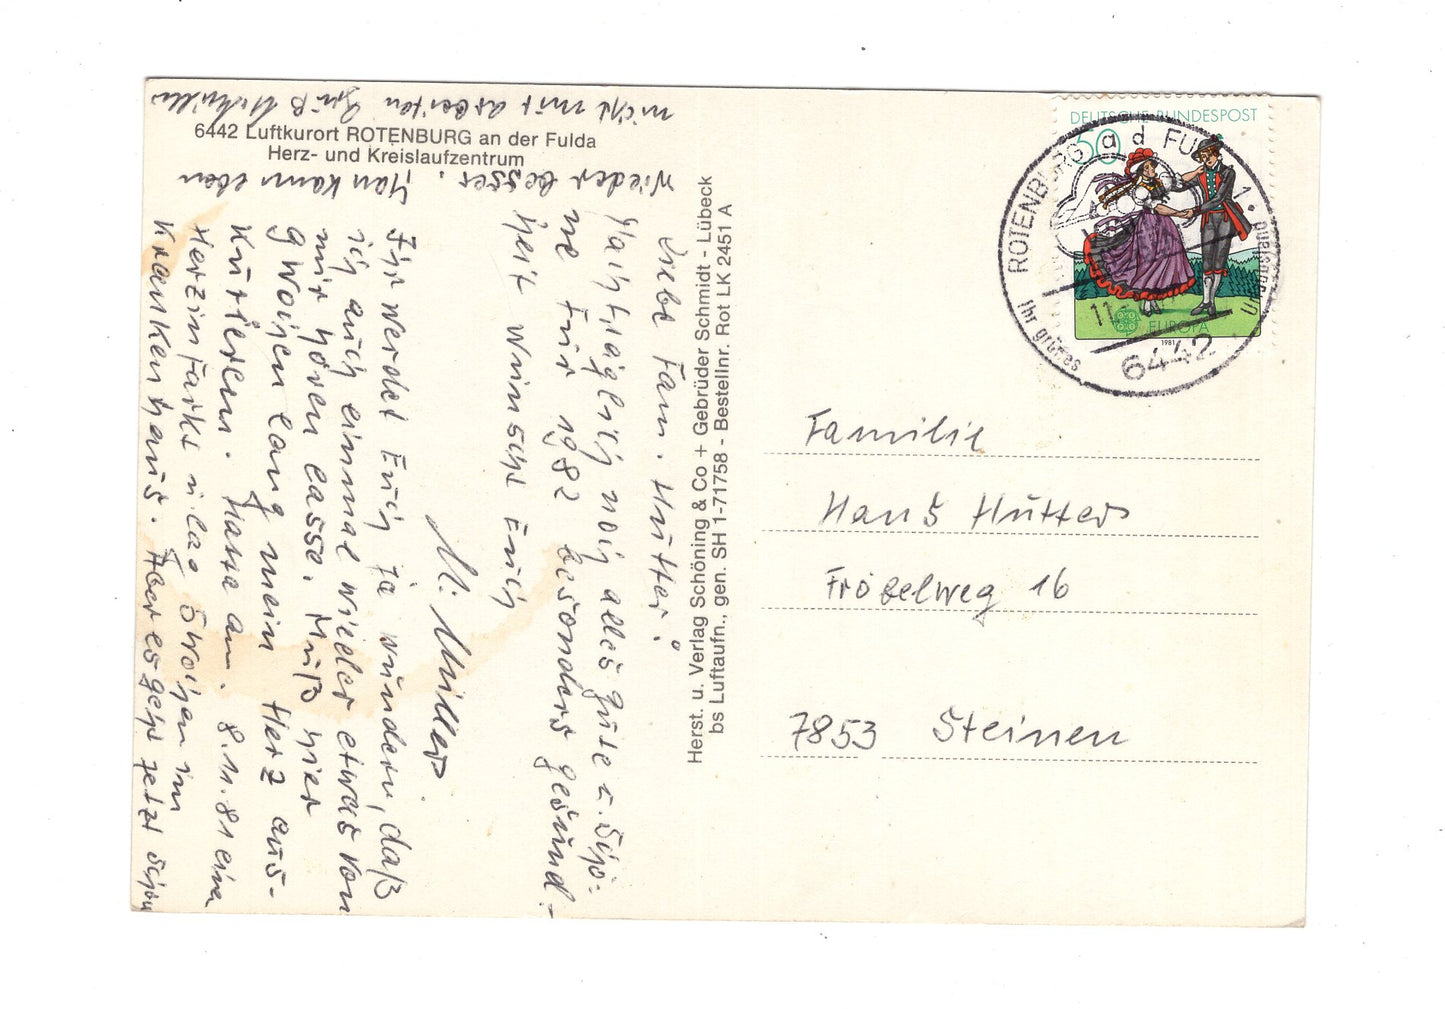 6442 Luftkurort ROTENBURG an der Fulda
Herz- und Kreislaufzentrum
Liebe Fam. Hutter!
Nachträglich noch alles gute u. Schö-
ne für 1982 besonders gesund-
heit wünscht Euch
M. Müller.
Ihr werdet Euch ja wundern, daß
ich auch einmal wieder etwas von
mir hören lasse. Muß hier
9 Wochen lang mein Herz aus-
kurieren. Hatte am. 8.11.81 eine
Herzinfarkt u. lag 5 Wochen im
Krankenhaus. Aber es geht jetzt schon
wieder besser. Man kann eben
nicht mit arbeiten Gruß
Herst. u. Verlag Schöning & Co + Gebrüder Schmidt - Lübeck
bs Luftaufn., gen. SH 1-71758 - Bestellnr. Rot LK 2451 A
DEUTSCHE BUNDESPOST
60
EUROPA
1981
ROTENBURG a d FU
1
Ihr grünes
11
6442
Familie
Hans Hutter
Fröbelweg 16
7853 Steinen